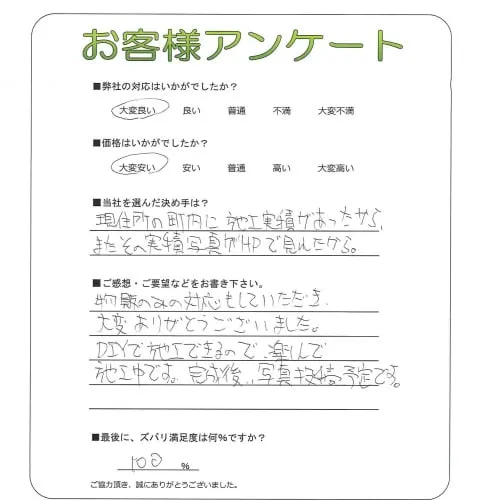 お客様アンケート
■弊社の対応はいかがでしたか？
大変良い 良い 普通 不満 大変不満
■価格はいかがでしたか？
大変安い 安い 普通 高い 大変高い
■当社を選んだ決め手は？
現住所の町内に施工実績があったから、
またその実績写真がHPで見れたから。
■ご感想・ご要望などをお書き下さい。
物販のみの対応もしていただき、
大変ありがとうございました。
DIYで施工できるので、楽しんで
施工中です。完成後、写真投稿予定です。
■最後に、ズバリ満足度は何％ですか？
100 %
ご協力頂き、誠にありがとうございました。